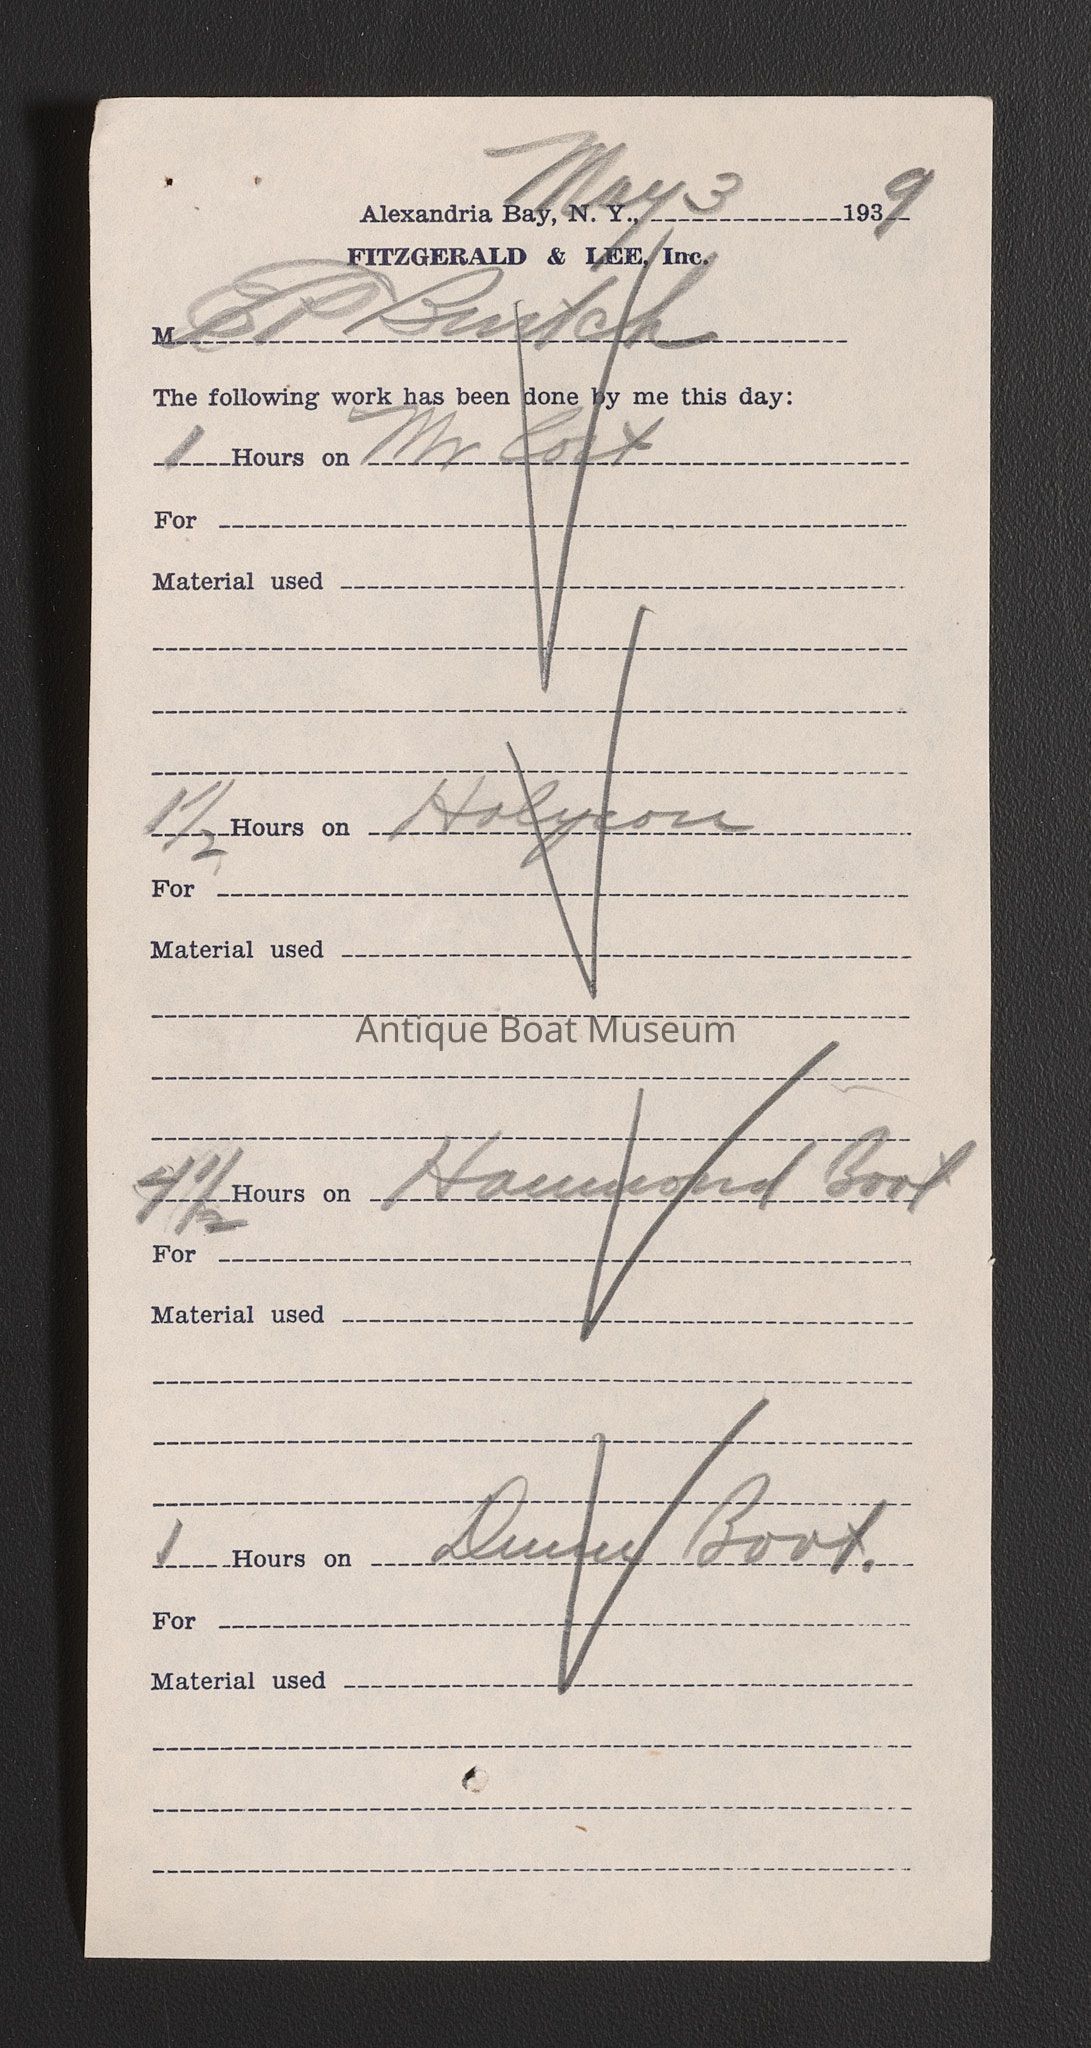 May 3 9
Alexandria Bay, N. Y., 193
FITZGERALD & LEE, Inc.
M E P Burtch
The following work has been done by me this day:
1 Hours on Mr
For
Material used
1 1/2 Hours on
For
Material used
Antique Boat Museum
4 1/2 Hours on Hammond Boat
For
Material used
1 Hours on Boat.
For
Material used